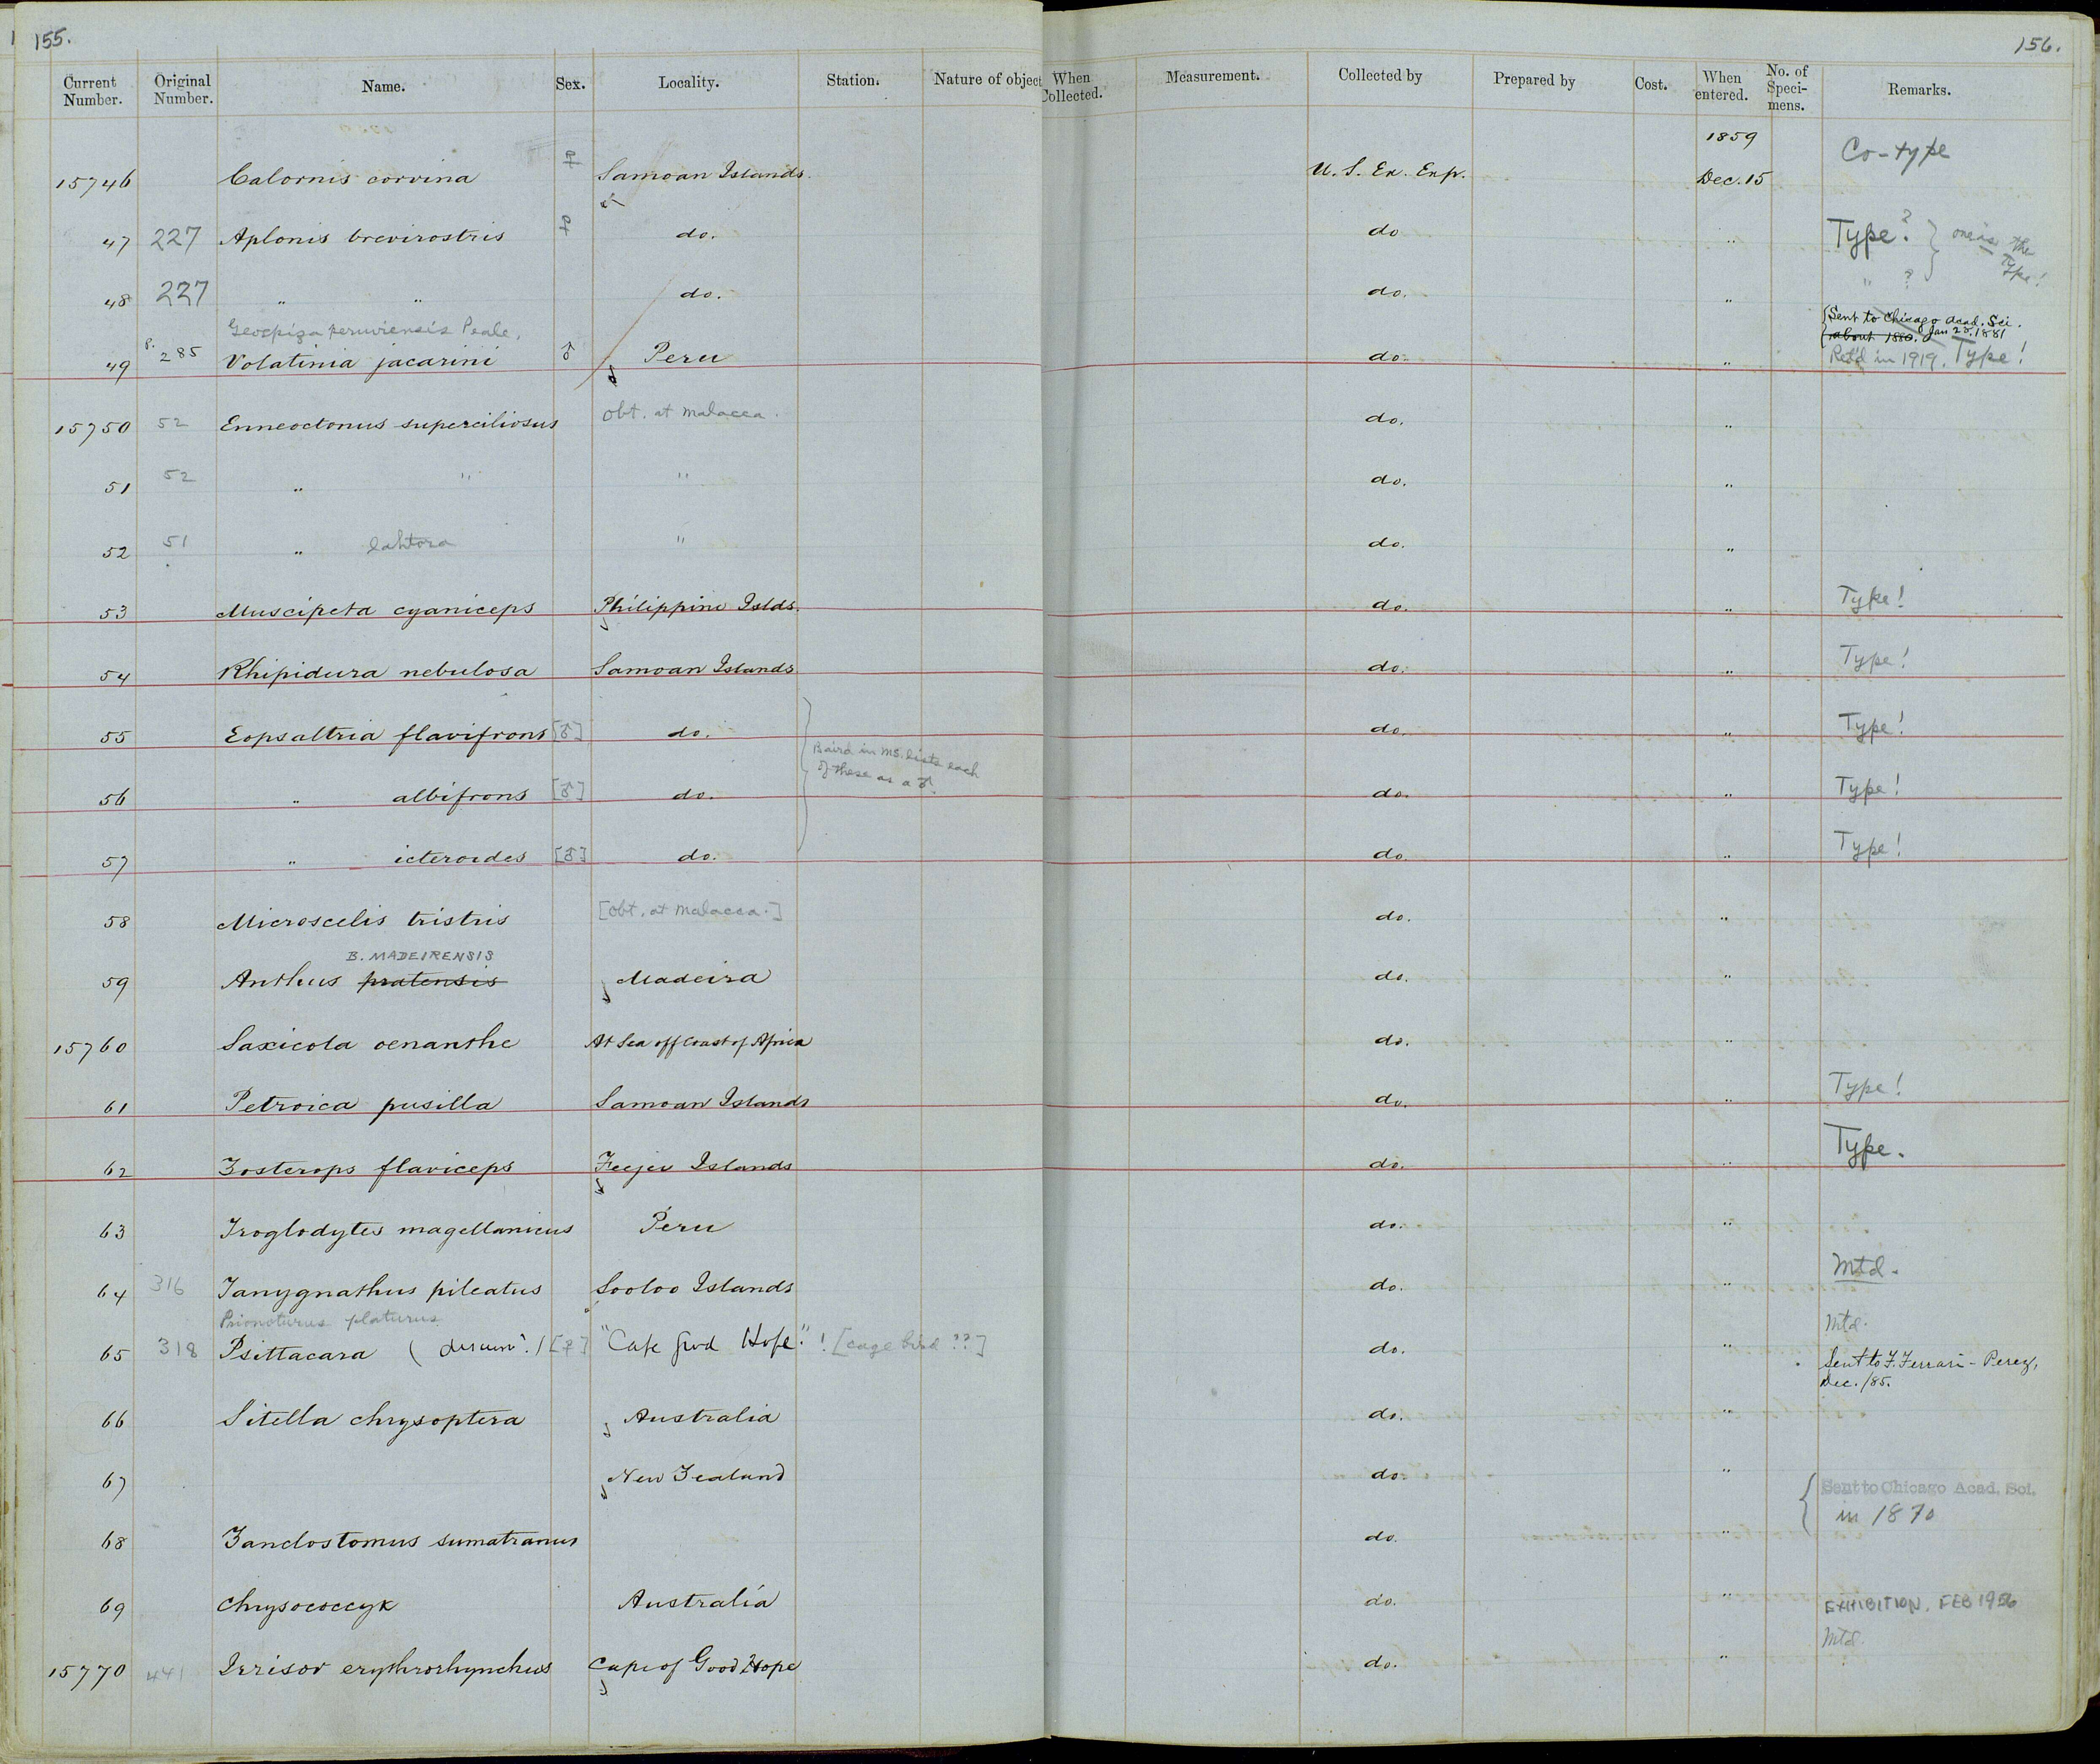 155.
156.
Current Number. Original Number. Name. Sex. Locality. Station. Nature of object When Collected. Measurement. Collected by Prepared by Cost. When entered. No. of Speci-mens. Remarks.
1859
15746 Calornis corvina ♀ Samoan Islands. U. S. Ex. Exp. Dec. 15 Co-type
47 227 Aplonis brevirostris ♀ do. do " Type? ? } one is the Type!
48 227 " " do. do. " " ?
Geospiza peruviensis Peale.
{Sent to Chicago Acad. Sci.
about 1880. Jan 25. 1881
49 P. 285 Volatinia jacarini ♂ Peru do. " Ret'd in 1919. Type!
15750 52 Enneoctonus superciliosus Obt. at Malacca. do. "
51 52 " " " do. "
52 51 " lahtora " do. "
53 Muscipeta cyaniceps Philippine Islds. do. " Type!
54 Rhipidura nebulosa Samoan Islands do. " Type!
55 Eopsaltria flavifrons [♂] do. do. " Type!
Baird in MS. lists each
of these as a ♂.
56 " albifrons [♂] do. do. " Type!
57 " icteroides [♂] do. do. " Type!
58 Microscelis tristis [Obt. at Malacca.] do. "
B. MADEIRENSIS
59 Anthus pratensis Madeira do. "
15760 Saxicola oenanthe At Sea off Coast of Africa do. "
61 Petroica pusilla Samoan Islands do. " Type!
62 Zosterops flaviceps Feejee Islands do. " Type.
63 Troglodytes magellanicus Peru do. "
64 316 Tanygnathus pileatus Sooloo Islands do. " Mtd.
Prionoturus platurus
Mtd.
65 318 Psittacara ( ) [♀] "Cape Good Hope." ! [cage bird ??] do. " Sent to F. Ferrari-Perez,
Dec. /85.
66 Sitella chrysoptera Australia do. "
67 New Zealand do. " {Sent to Chicago Acad. Sci.
in 1870
68 Zanclostomus sumatranus do. "
69 Chrysococcyx Australia do. " EXHIBITION. FEB 1956
Mtd.
15770 441 Irrisor erythrorhynchus Cape of Good Hope do. "